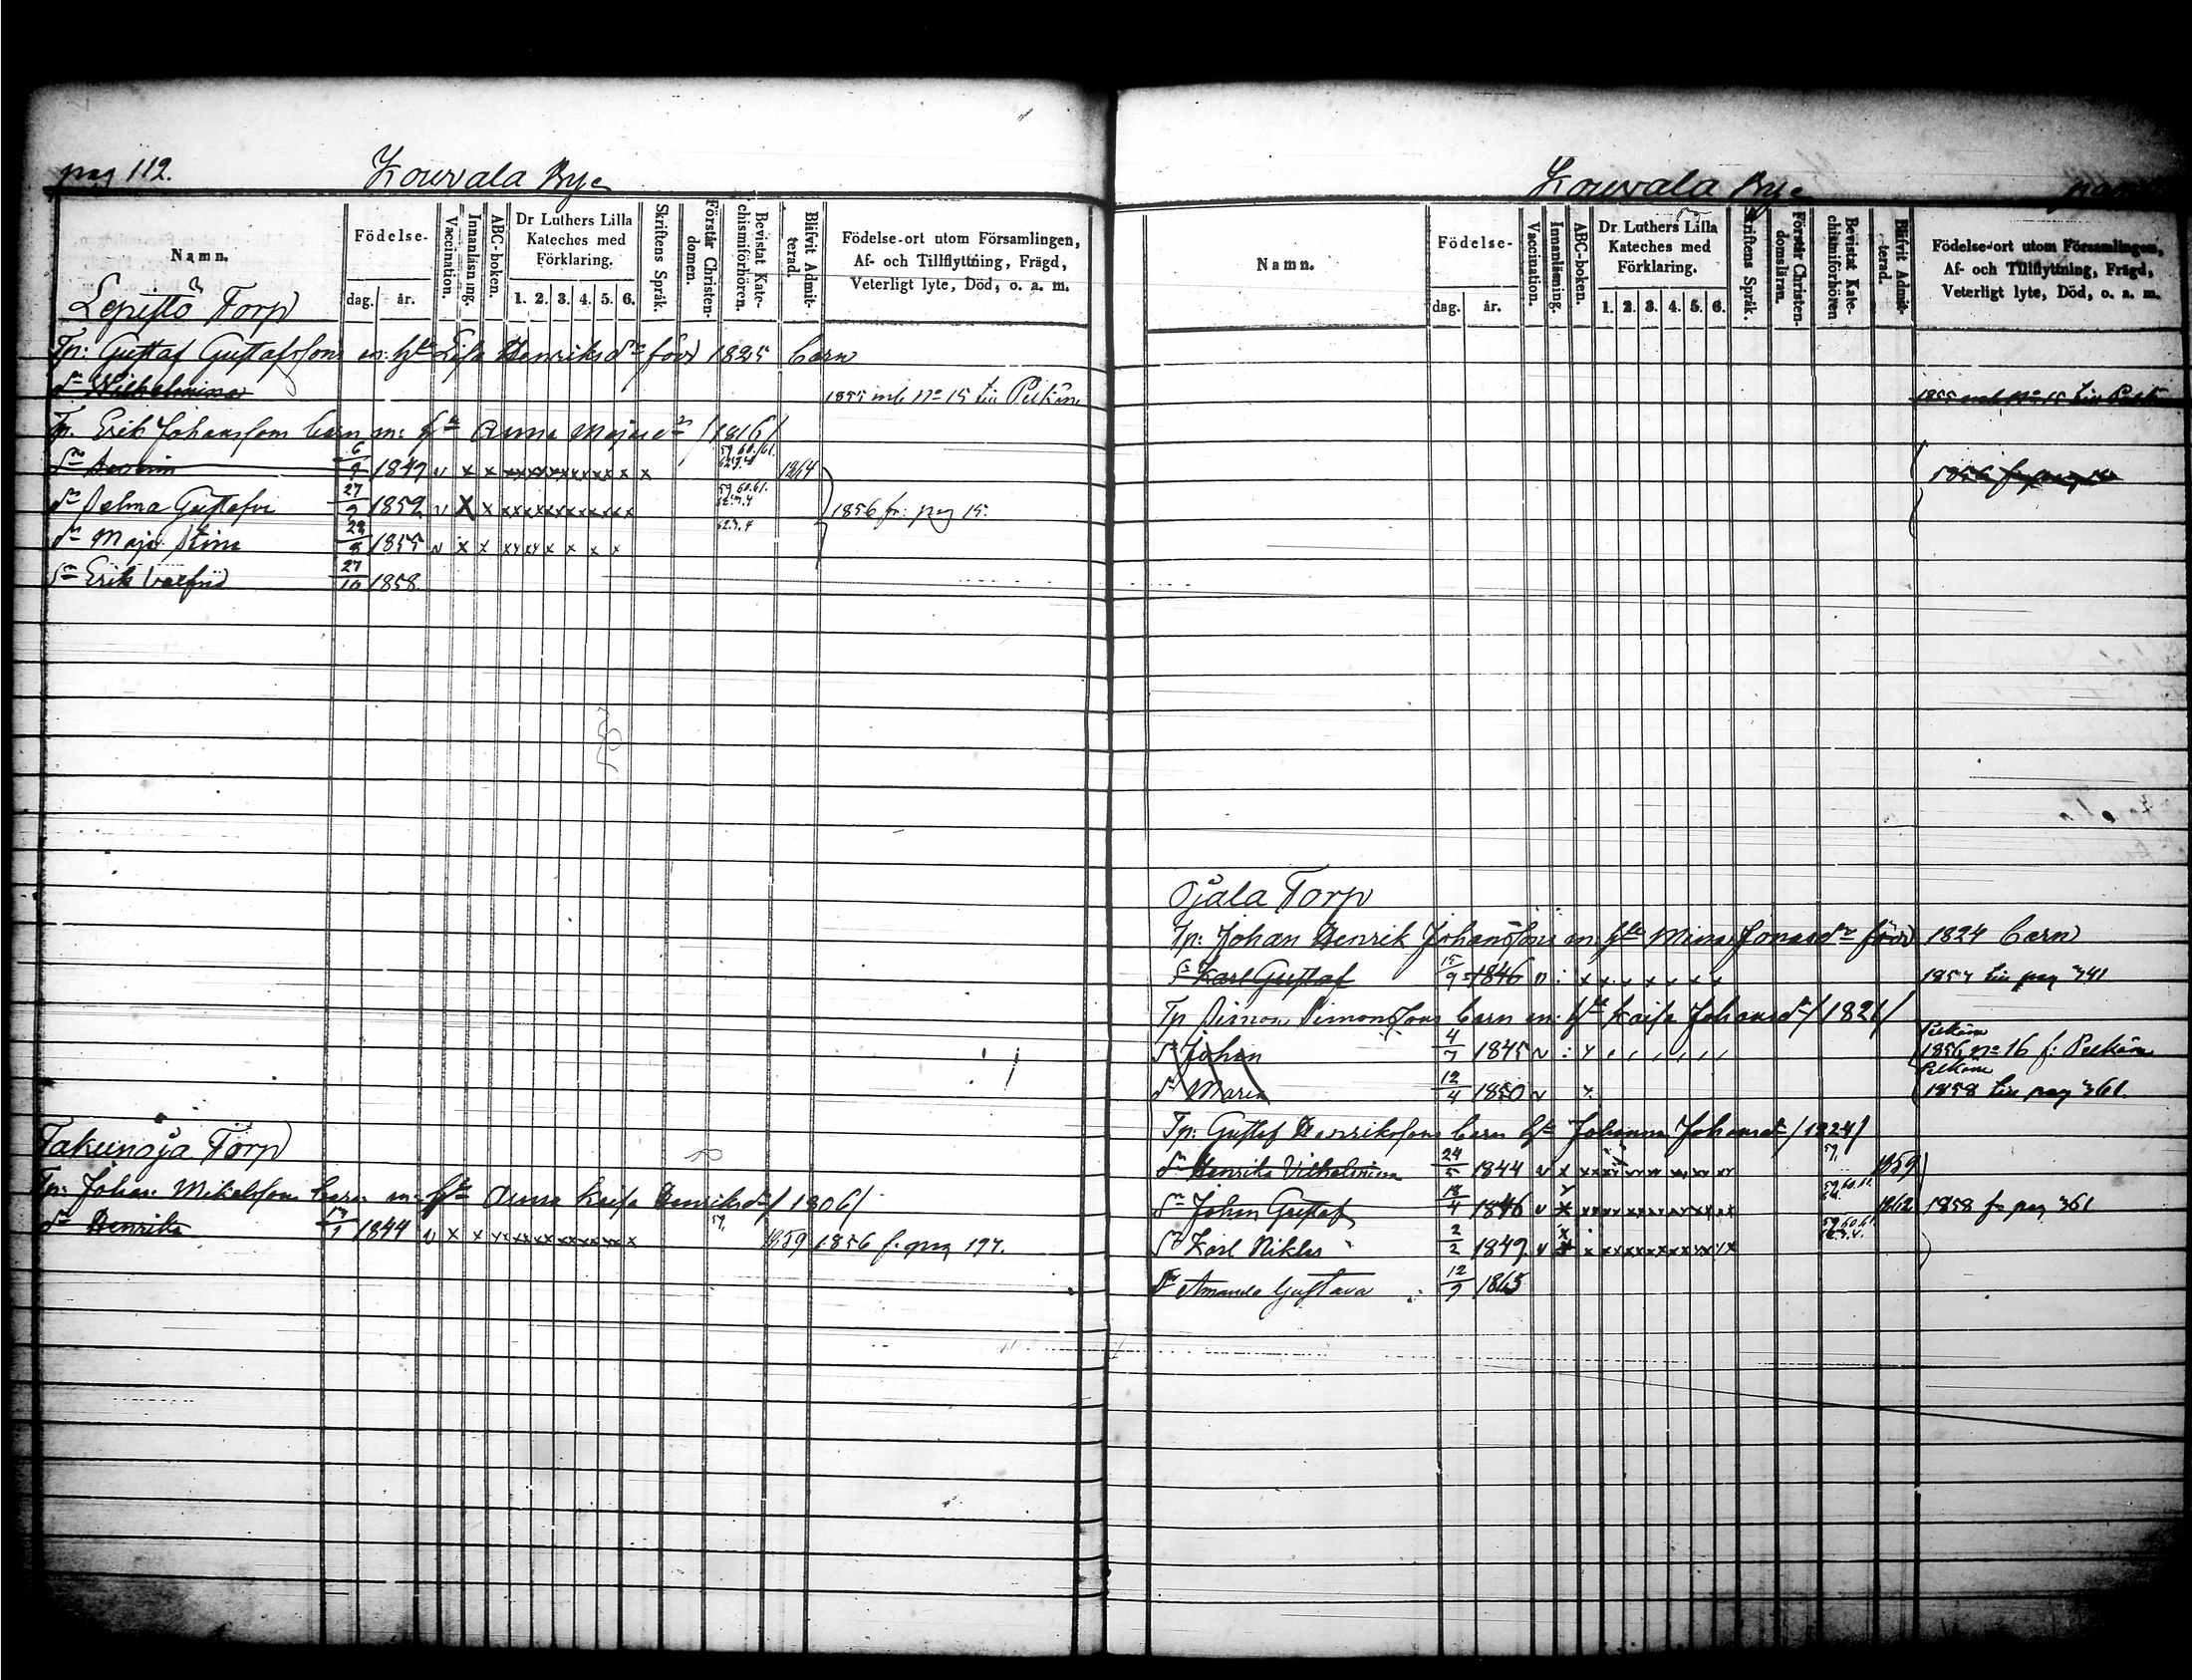 pag 112.
Kouvala Bye
Namn.
Födelse-
dag.
år.
Vaccination.
Innanläsning.
ABC-boken.
Dr Luthers Lilla
Kateches med
Förklaring.
1. 2. 3. 4. 5. 6.
Skriftens Språk.
Förstår Christen-
domen.
Bevistat Kate-
chismiförhören.
Blifvit Admit-
terad.
Födelse-ort utom Församlingen,
Af- och Tillflyttning, Frägd,
Veterligt lyte, Död, o. a. m.
Torp
Tp: Gustaf Gustafssons m: hu Lisa Henriksdr född 1825 barn
dr Wilhelmina 1855 mb No 15 till Pelkäne
Tp. Erik Johansson barn m: hu Anna Majasdr /1816/
6/9 1849 v x x xx xx xx xx xx x x 1864
dr Selma Gustafva 27/9 1852 v x x 1856 fr: pag 15.
dr Maja Stina 1855 v x x xx xx x x x x
Sn Erik Valfrid 27/10 1858.
Torp
Tp: Johan Mikelsson barn m: hu Anna Kaisa Henriksdr / 1806/
dr Henrika 1844 v x x 59. 1859 1856 f. pag 197.
Kouvala Bye
Namn.
Födelse-
dag.
år.
Vaccination.
Innanläsning.
ABC-boken.
Dr. Luthers Lilla
Kateches med
Förklaring.
1. 2. 3. 4. 5. 6.
Skriftens Språk.
Förstår Christen-
domsläran.
Bevistat Kate-
chismiförhören
Blifvit Admit-
terad.
Födelse-ort utom Församlingen,
Af- och Tillflyttning, Frägd,
Veterligt lyte, Död, o. a. m.
1855 mb No 15 till Pelkäne
1856 fr pag 15
Ojala Torp
Tp: Johan Henrik Johanssons m: hu Mina Jonasdr född 1824 barn
S Karl Gustaf 15/9 1846 1857 till pag 341
Tp Simon Simonssons barn m: hu Kaisa Johansdr / 1821/
Sn Johan 4/7 1845 Pelkäne
1856 No 16 f: Pelkäne
dr Maria 12/4 1850 Pelkäne
1858 till pag 361.
Tp: Gustaf Henrikssons barn hu Johanna Johansdr / 1824/
dr Henrika Vilhelmina 24/5 1844 v x 59. 1859
Sn Johan Gustaf 18/4 1846 v x 1862 1858 fr pag 361
Sn Karl Niklas 2/2 1849 v x
dr Amanda Gustava 12/9 1865